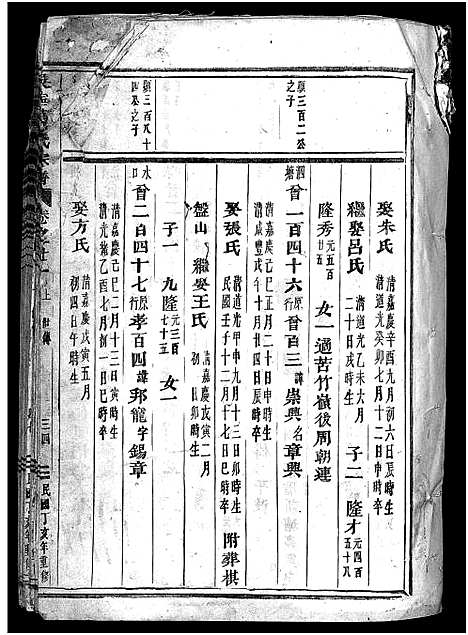 顯三百二公
之子
顯三百八十
四公之子
娶朱氏
清嘉慶辛酉九月初六日辰時生
清道光癸卯七月十二日申時卒
繼娶呂氏
清道光乙未六月
二十日戌時生
子二
隆才
元四百
五十八
隆秀
元五百
廿五
女一適苦竹嶺後周朝連
泗塘
首一百四十六
原行
首百三
諱
崇興
名
章興
清嘉慶己巳正月二十日申時生
清咸豐戊午十月廿四日辰時卒
娶張氏
清道光甲申九月十三日卯時生
民國壬子十二月十七日巳時卒
附葬棋
盤山
繼娶王氏
清嘉慶戊寅二月
初日卯時生
子一
九隆
元三百
七十五
女一
水口
首二百四十七
原行
孝百四
諱
邦龍
字
錫章
清嘉慶己巳二月十三日寅時生
清光緒乙酉七月初一日巳時卒
娶方氏
清嘉慶戊寅五月
初四日午時生
上
三四
民國丁亥年重修